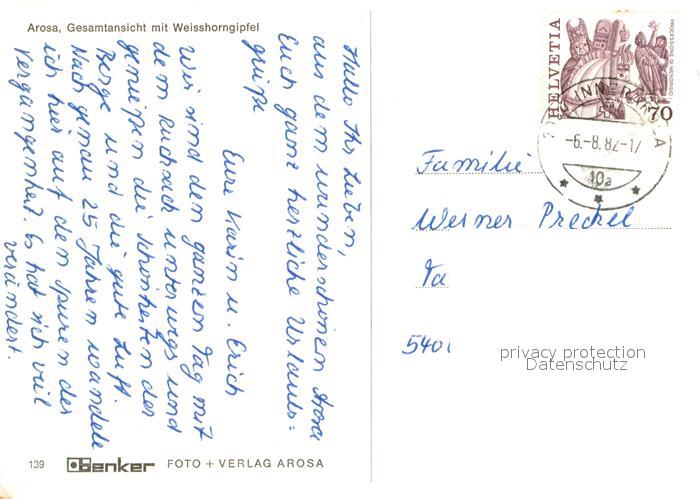 Arosa, Gesamtansicht mit Weisshorngipfel
Hallo Ihr Lieben,
aus dem wunderschönen Arosa
Euch ganz herzliche Urlaubs=
grüße
Eure Karin u. Erich
Wir sind den ganzen Tag mit
dem Rucksack unterwegs und
genießen die Schönheiten der
Berge und die gute Luft.
Nach genau 25 Jahren wandele
ich hier auf den Spuren der
Vergangenheit. Es hat sich viel
verändert.
139 Genker FOTO + VERLAG AROSA
HELVETIA
PROCESSIONE DI MENDRISIO
70
INNERAROSA
-6.-8.82-17
10a
Familie
Werner Preckel
5401
privacy protection
Datenschutz